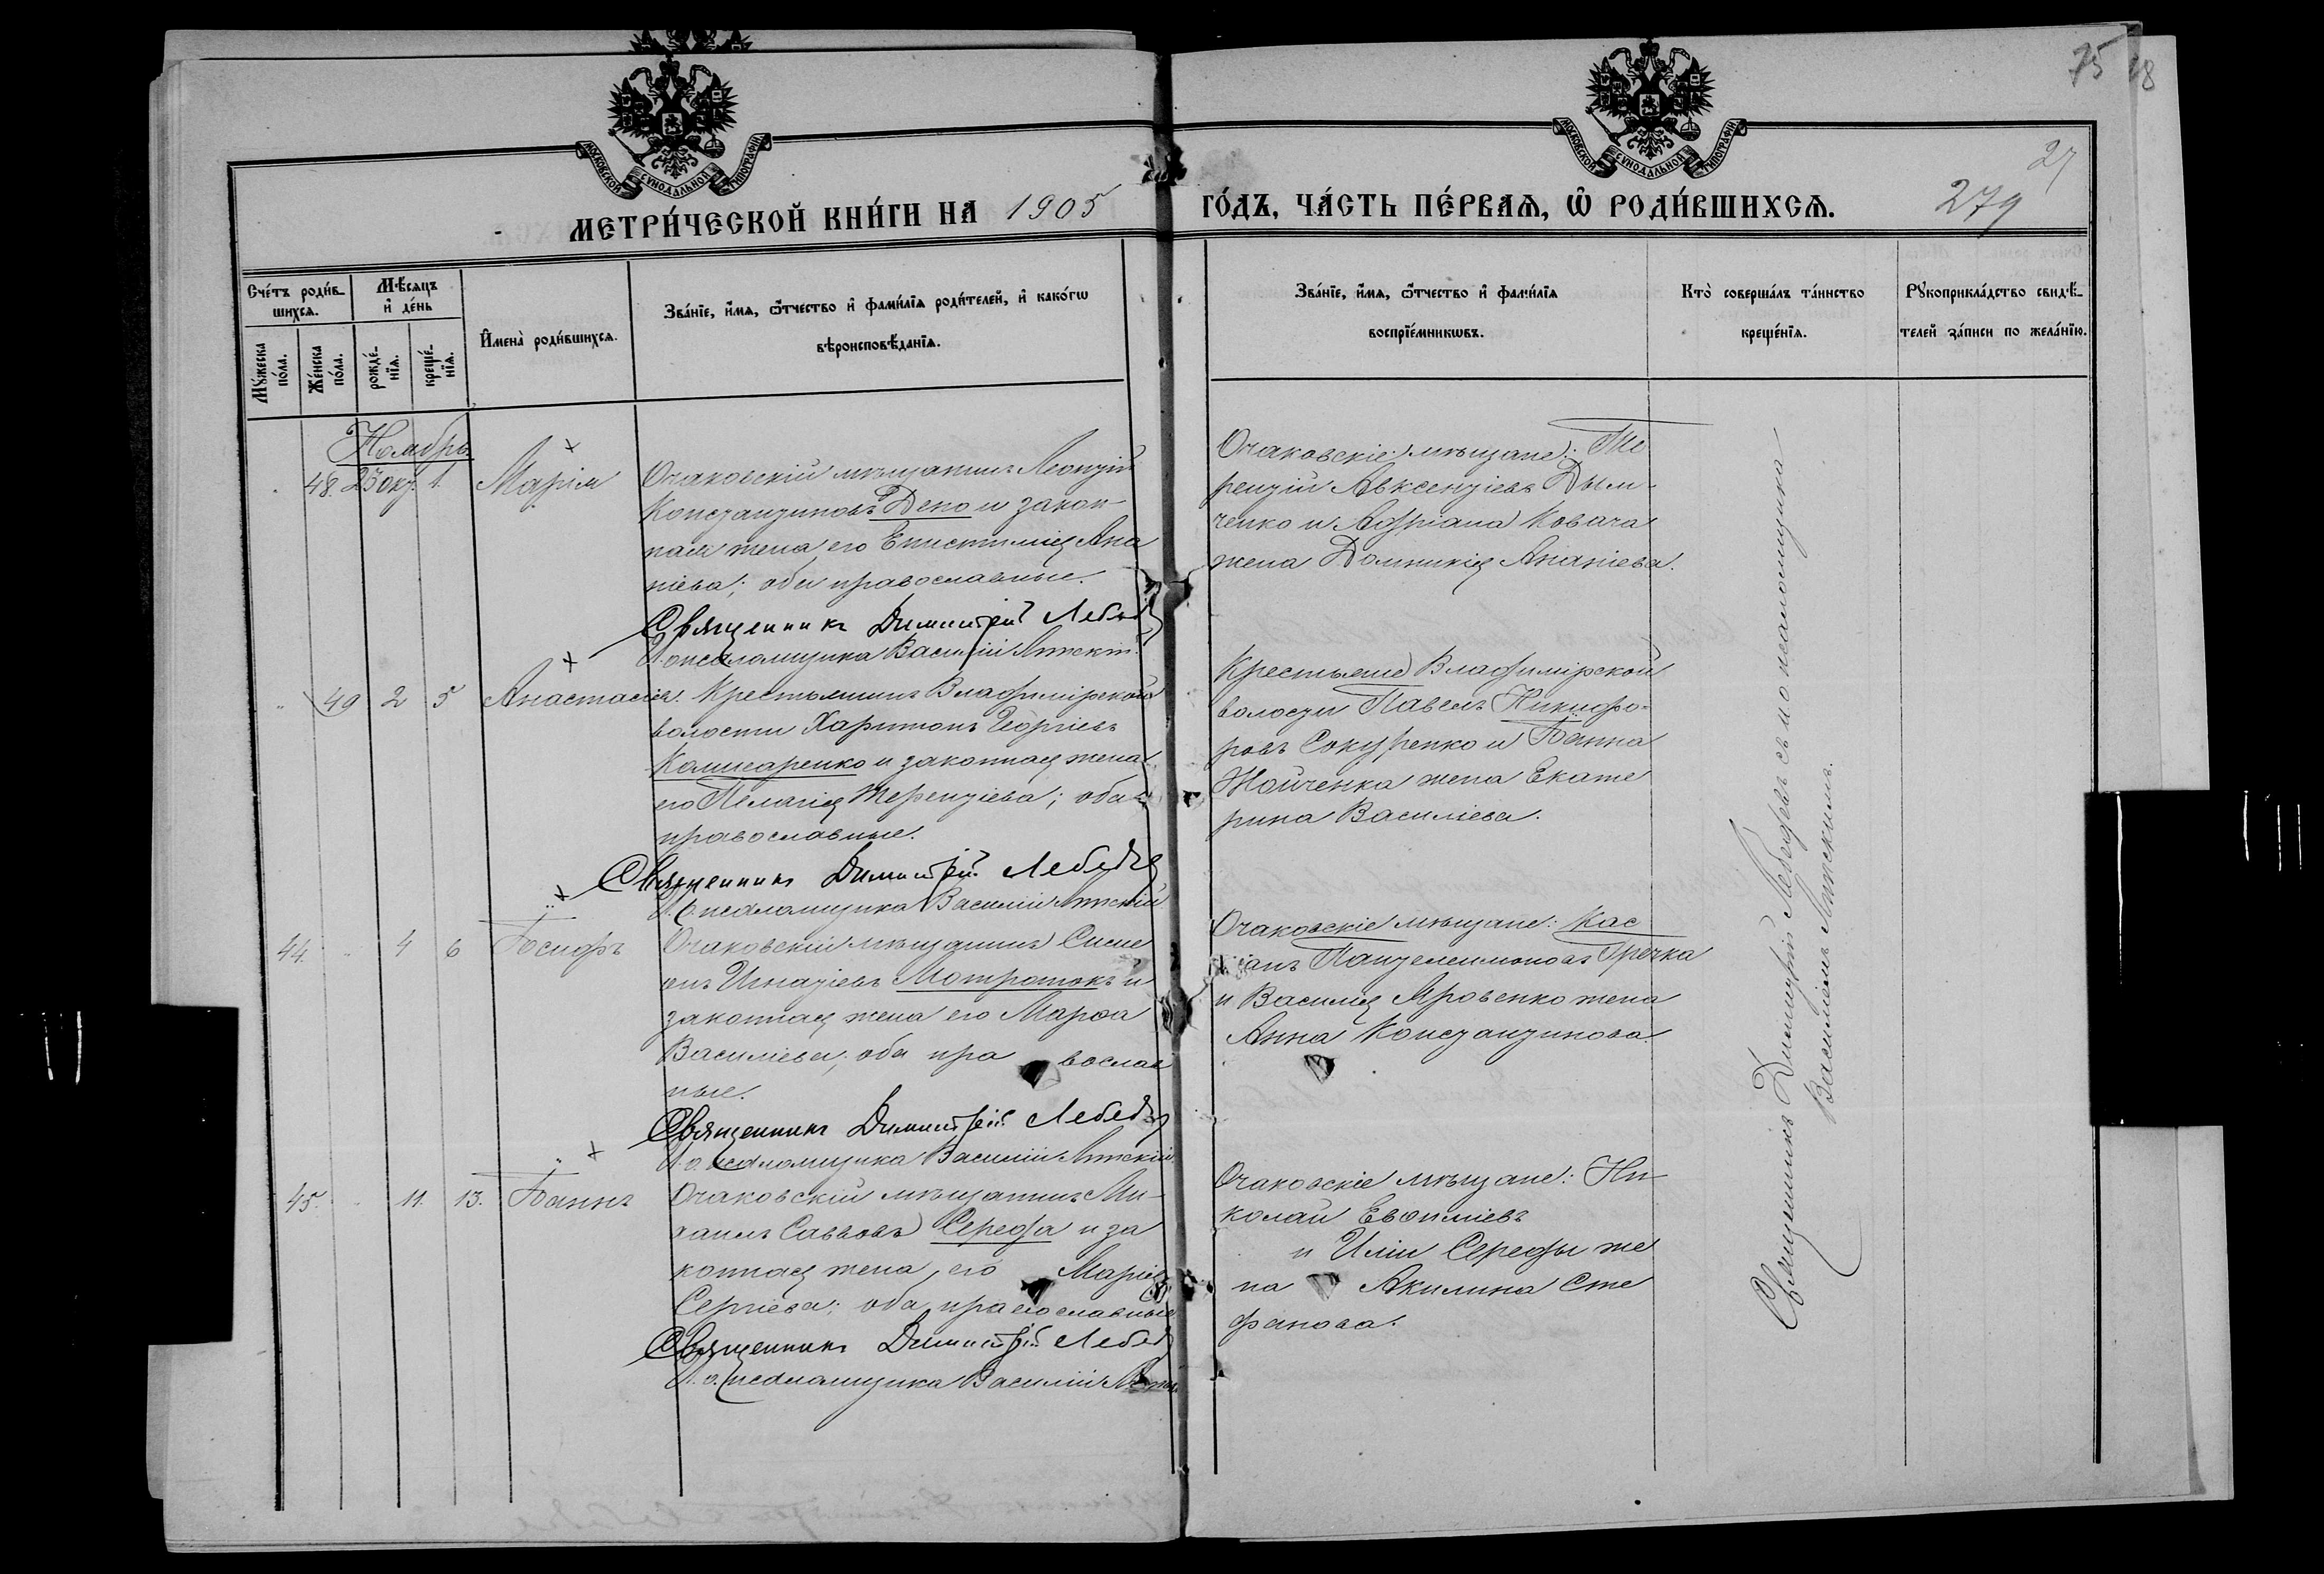 75
48
27
279
МОСКОВСКОЙ СѴНОДАЛЬНОЙ ТИПОГРАФІИ
МОСКОВСКОЙ СѴНОДАЛЬНОЙ ТИПОГРАФІИ
МЕТРИ́ЧЕСКОЙ КНИ́ГИ НА 1905
ГО́ДЪ, ЧА́СТЬ ПЕ́РВАѦ, Ѽ РОДИ́ВШИХСѦ.
Сче́тъ роди́в-
шихсѧ.
Мꙋ́жеска
по́ла.
Же́нска
по́ла.
Мѣ́сѧцъ
и҆ де́нь
рожде́-
нїѧ.
креще́-
нїѧ.
И҆мена̀ роди́вшихсѧ.
Зва́нїе, и҆́мѧ, ѻ҆́тчество и҆ фами́лїѧ роди́телей, и҆ како́гѡ
вѣроисповѣ́данїѧ.
Зва́нїе, и҆́мѧ, ѻ҆́тчество и҆ фами́лїѧ
воспрїе́мникѡвъ.
Кто̀ соверша́лъ та́инство
креще́нїѧ.
Рꙋкоприкла́дство свидѣ́-
телей за́писи по жела́нїю.
Ноябрь
48. 25 окт. 1. Марія
Очаковскій мѣщанинъ Леонтій
Константиновъ Дено и закон
ная жена его Епистимія Ана
ніева; оба православные.
Священникъ Димитрій Лебедев
И. о псаломщика Василій Ятскій
Очаковскіе мѣщане: Те
рентій Авксентіевъ Дым-
ченко и Адріана Ковача
жена Домникія Ананіева.
49 2 5 Анастасія.
Крестьянинъ Владимірской
волости Харитонъ Георгіевъ
Кошкаренко и законная жена
его Пелагія Терентіева; оба
православные.
Священникъ Димитрій Лебедев
И. о. псаломщика Василій Ятскій
Крестьяне Владимірской
волости Павелъ Никифо-
ровъ Сокуренко и Іоанна
Нойченка жена Екате
рина Василіева.
44. 4 6 Іосифъ
Очаковскій мѣщанинъ Симе
онъ Игнатіевъ Мотротокъ и
законная жена его Марѳа
Василіева; оба православ
ные.
Священникъ Димитрій Лебедев
И. о. псаломщика Василій Ятскій
Очаковскіе мѣщане: Кас
іанъ Пантелеимоновъ Гречка
и Василія Яровенко жена
Анна Константинова.
45. 11. 13. Іоаннъ
Очаковскій мѣщанинъ Ми-
хаилъ Саввовъ Середа и за
конная жена его Марія
Сергіева; оба православные
Священникъ Димитрій Лебед
И. о. псаломщика Василій
Очаковскіе мѣщане: Ни-
колай Евѳиміевъ
и Иліи Середы же
на Акилина Сте
фанова.
Священникъ Димитрій Лебедевъ съ и о псаломщика
Василіемъ Ятскимъ.